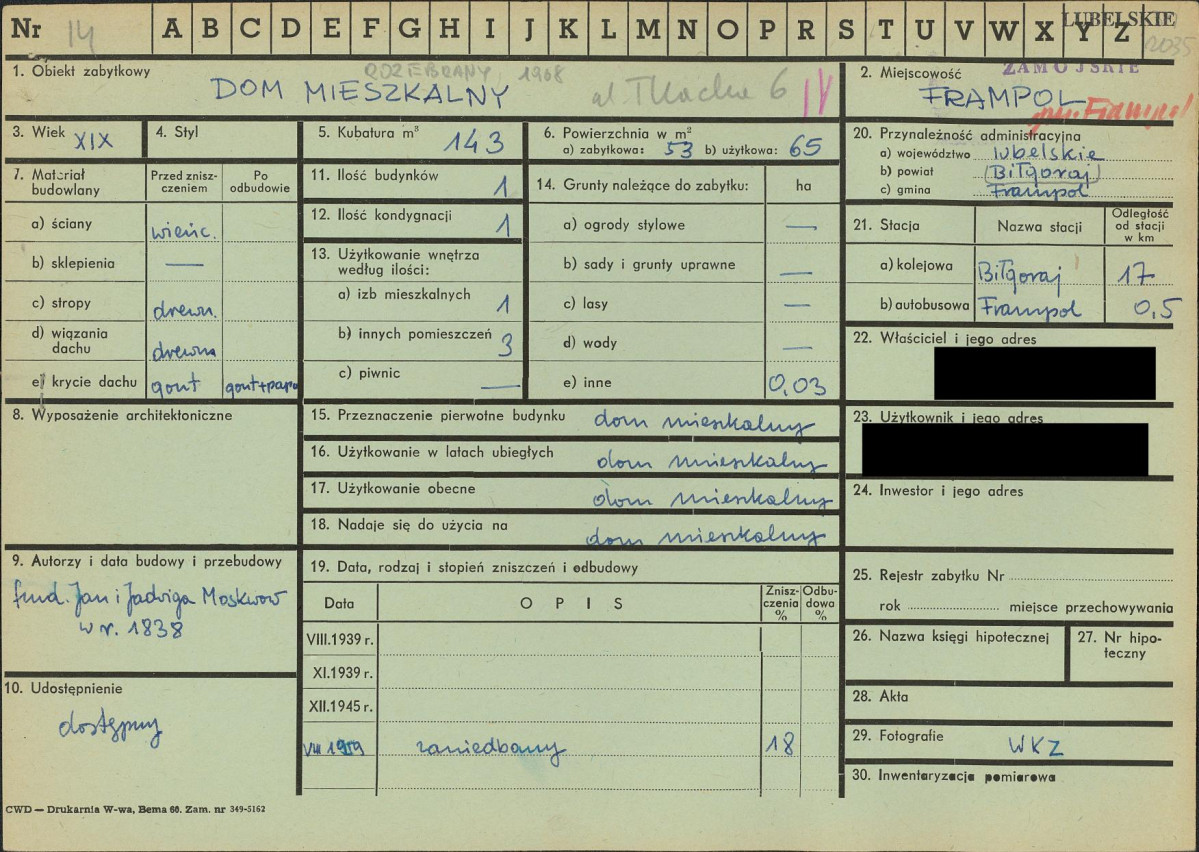 Nr 14 A B C D E F G H I J K L M N O P R S T U V W X Y Z
LUBELSKIE
2035
1. Obiekt zabytkowy
ROZEBRANY, 1968
DOM MIESZKALNY
ul Tkacka 6
IV
2. Miejscowość
ZAMOJSKIE
FRAMPOL
3. Wiek XIX
4. Styl
5. Kubatura m³ 143
6. Powierzchnia w m²
a) zabytkowa: 53 b) użytkowa: 65
7. Materiał budowlany
Przed zniszczeniem
Po odbudowie
a) ściany wieńc.
b) sklepienia —
c) stropy drewn.
d) wiązania dachu drewna
e) krycie dachu gont gont+papa
8. Wyposażenie architektoniczne
9. Autorzy i data budowy i przebudowy
fund. Jan i Jadwiga Moskwow
w r. 1838
10. Udostępnienie
dostępny
11. Ilość budynków 1
12. Ilość kondygnacji 1
13. Użytkowanie wnętrza
według ilości:
a) izb mieszkalnych 1
b) innych pomieszczeń 3
c) piwnic —
14. Grunty należące do zabytku: ha
a) ogrody stylowe —
b) sady i grunty uprawne —
c) lasy —
d) wody —
e) inne 0,03
15. Przeznaczenie pierwotne budynku dom mieszkalny
16. Użytkowanie w latach ubiegłych dom mieszkalny
17. Użytkowanie obecne dom mieszkalny
18. Nadaje się do użycia na dom mieszkalny
19. Data, rodzaj i stopień zniszczeń i odbudowy
Data
O P I S
Zniszczenia %
Odbudowa %
VIII.1939 r.
XI.1939 r.
XII.1945 r.
VIII 1959 zaniedbany 18
20. Przynależność administracyjna
a) województwo lubelskie
b) powiat (Biłgoraj)
c) gmina Frampol
21. Stacja
Nazwa stacji
Odległość od stacji w km
a) kolejowa Biłgoraj 17
b) autobusowa Frampol 0,5
22. Właściciel i jego adres
23. Użytkownik i jego adres
24. Inwestor i jego adres
25. Rejestr zabytku Nr
rok miejsce przechowywania
26. Nazwa księgi hipotecznej
27. Nr hipoteczny
28. Akta
29. Fotografie WKZ
30. Inwentaryzacja pomiarowa
CWD — Drukarnia W-wa, Bema 60. Zam. nr 349-5162